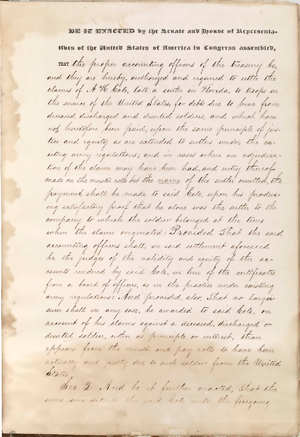 BE IT ENACTED by the Senate and House of Representa-
tives of the United States of America in Congress assembled,
THAT the proper accounting officers of the treasury be,
and they are hereby, authorized and required to settle the
claims of A. H. Cole, late a sutler in Florida, to troops in
the service of the United States, for debts due to him from
deceased, discharged and deserted soldiers, and which have
not heretofore been paid, upon the same principle of jus-
tice and equity as are extended to sutlers under the ex-
isting army regulations; and in cases where an adjudica-
tion of the claim may have been had, and entry thereof
made on the muster rolls but the name of the sutler omitted, the
payment shall be made to said Cole, upon his produc-
ing satisfactory proof that he alone was the sutler to the
company to which the soldier belonged at the time
when the claim originated: Provided, That the said
accounting officers shall, in said settlement aforesaid
be the judges of the validity and equity of the ac-
counts rendered by said Cole, in lieu of the certificates
from a board of officers, as is the practice under existing
army regulations: And provided, also, That no larger
sum shall in any case, be awarded to said Cole, on
account of his claims against a deceased, discharged or
deserted soldier, either as principle or interest, than
appears from the muster and pay rolls to have been
actually and justly due to such soldier from the United
States.
Sec. 2. And be it further enacted, That the
sums awarded to the said Cole under the foregoing